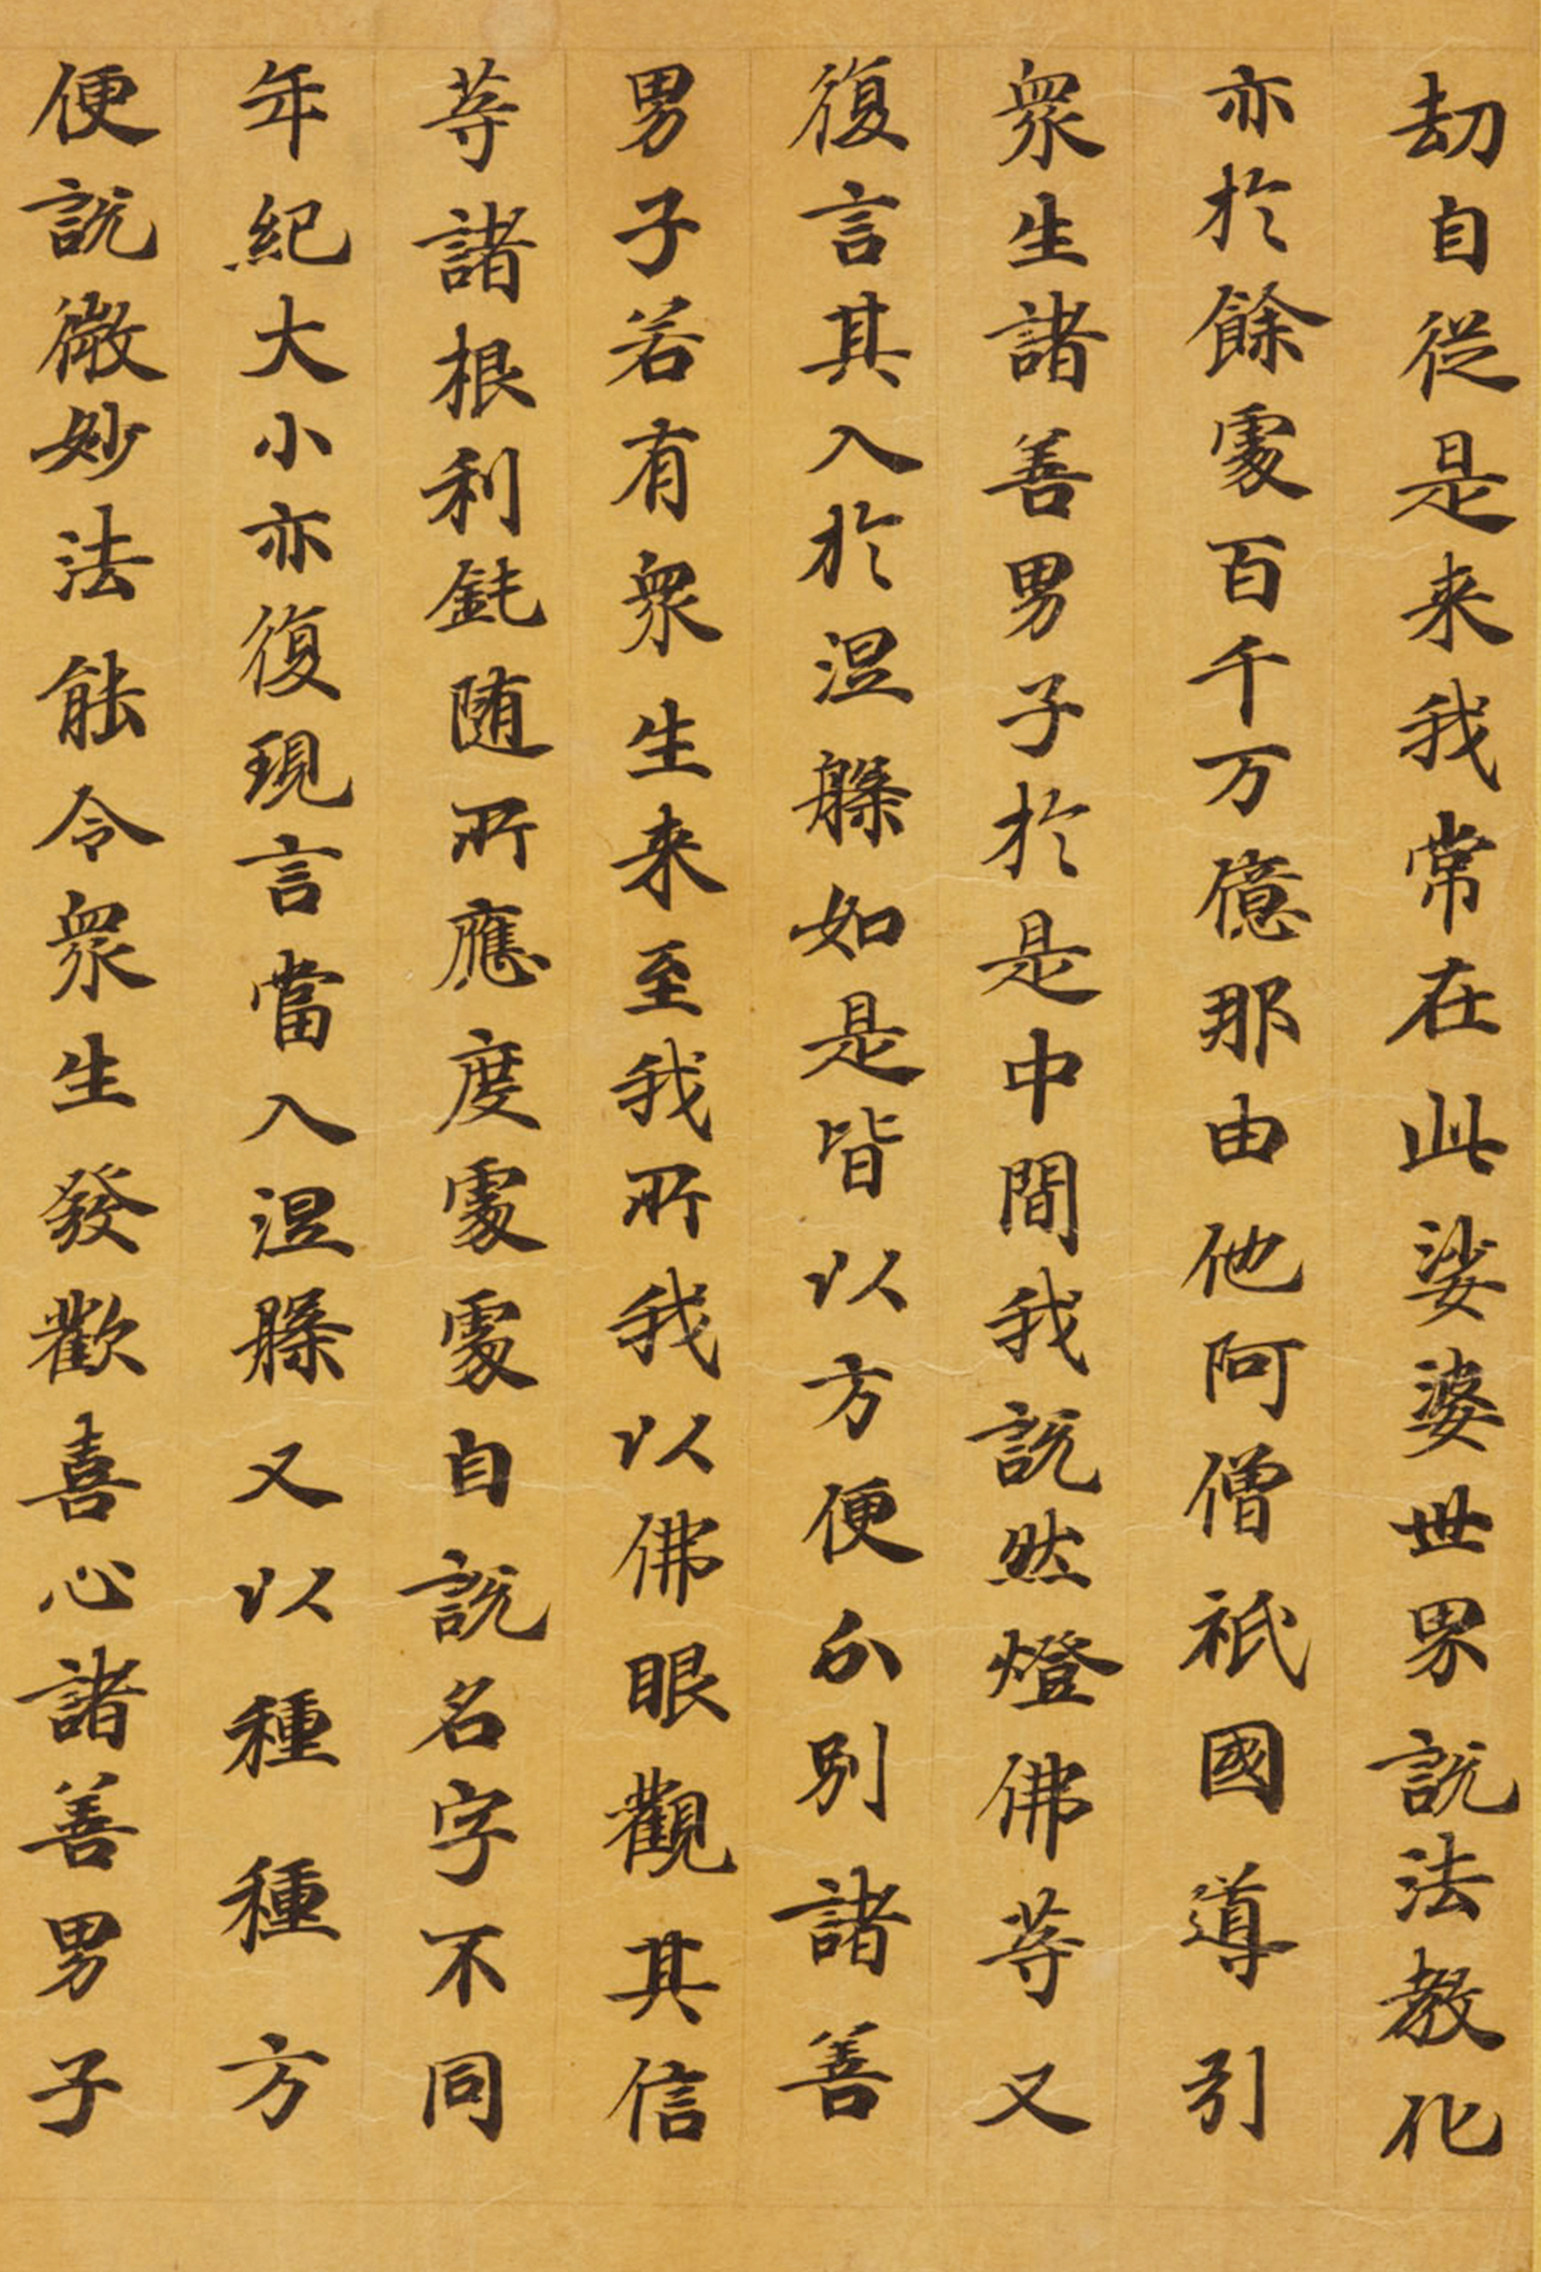 劫自從是来我常在此娑婆世界說法教化
亦於餘處百千万億那由他阿僧祇國導引
眾生諸善男子於是中間我說然燈佛等又
復言其入於涅槃如是皆以方便分別諸善
男子若有眾生来至我所我以佛眼觀其信
等諸根利鈍随所應度處處自說名字不同
年紀大小亦復現言當入涅槃又以種種方
便說微妙法能令眾生發歡喜心諸善男子